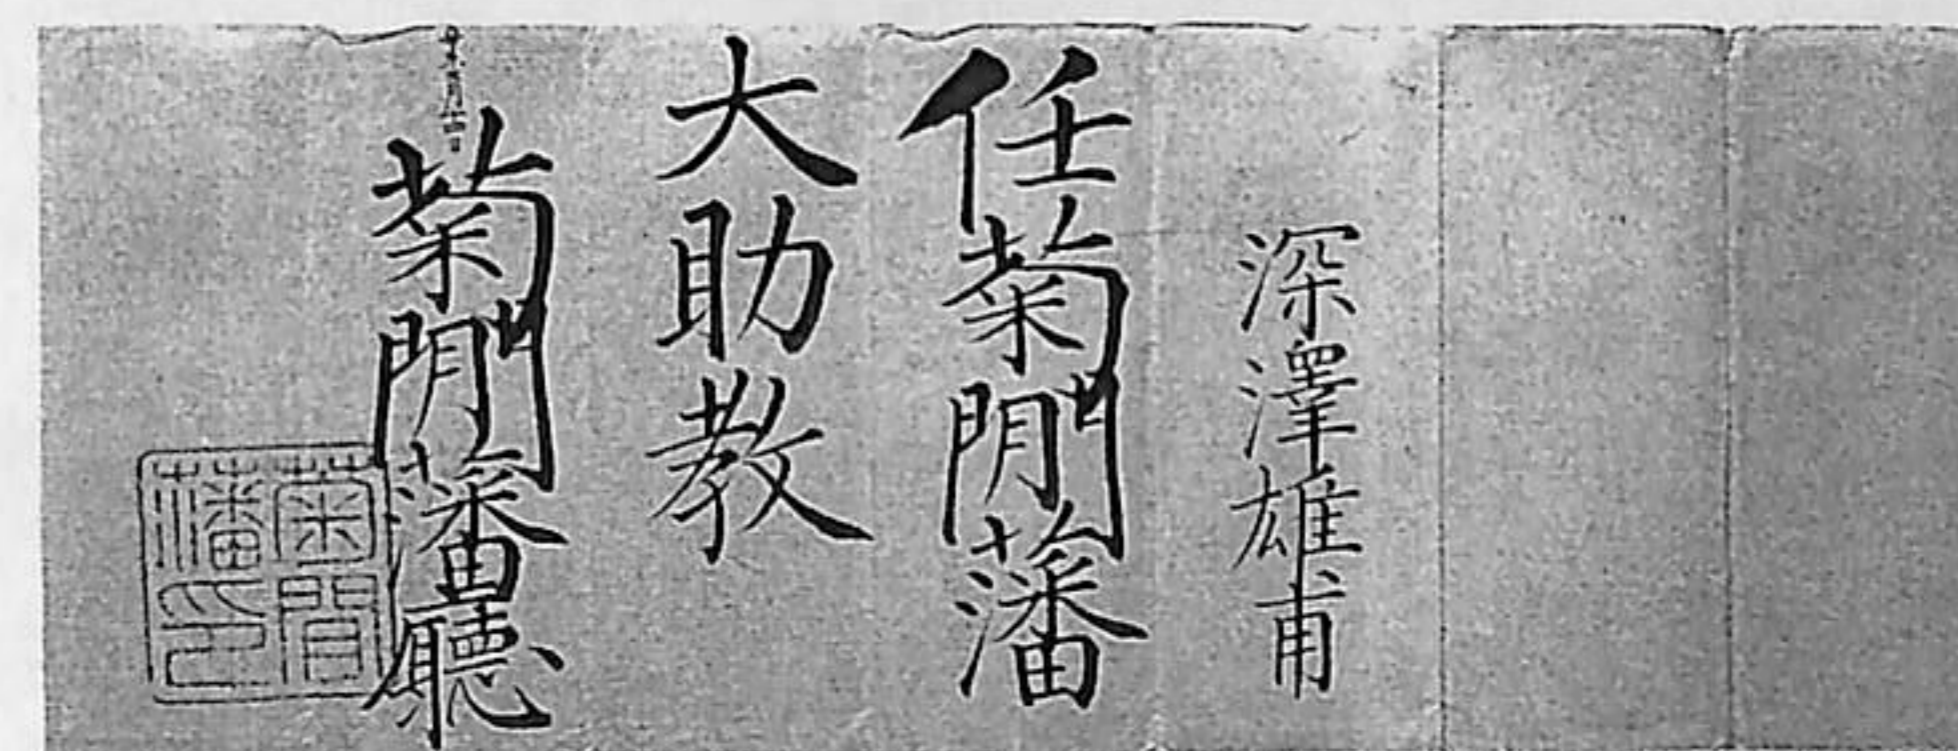 深澤雄甫
任菊閒藩
大助教
菊閒藩廳
菊間
藩印